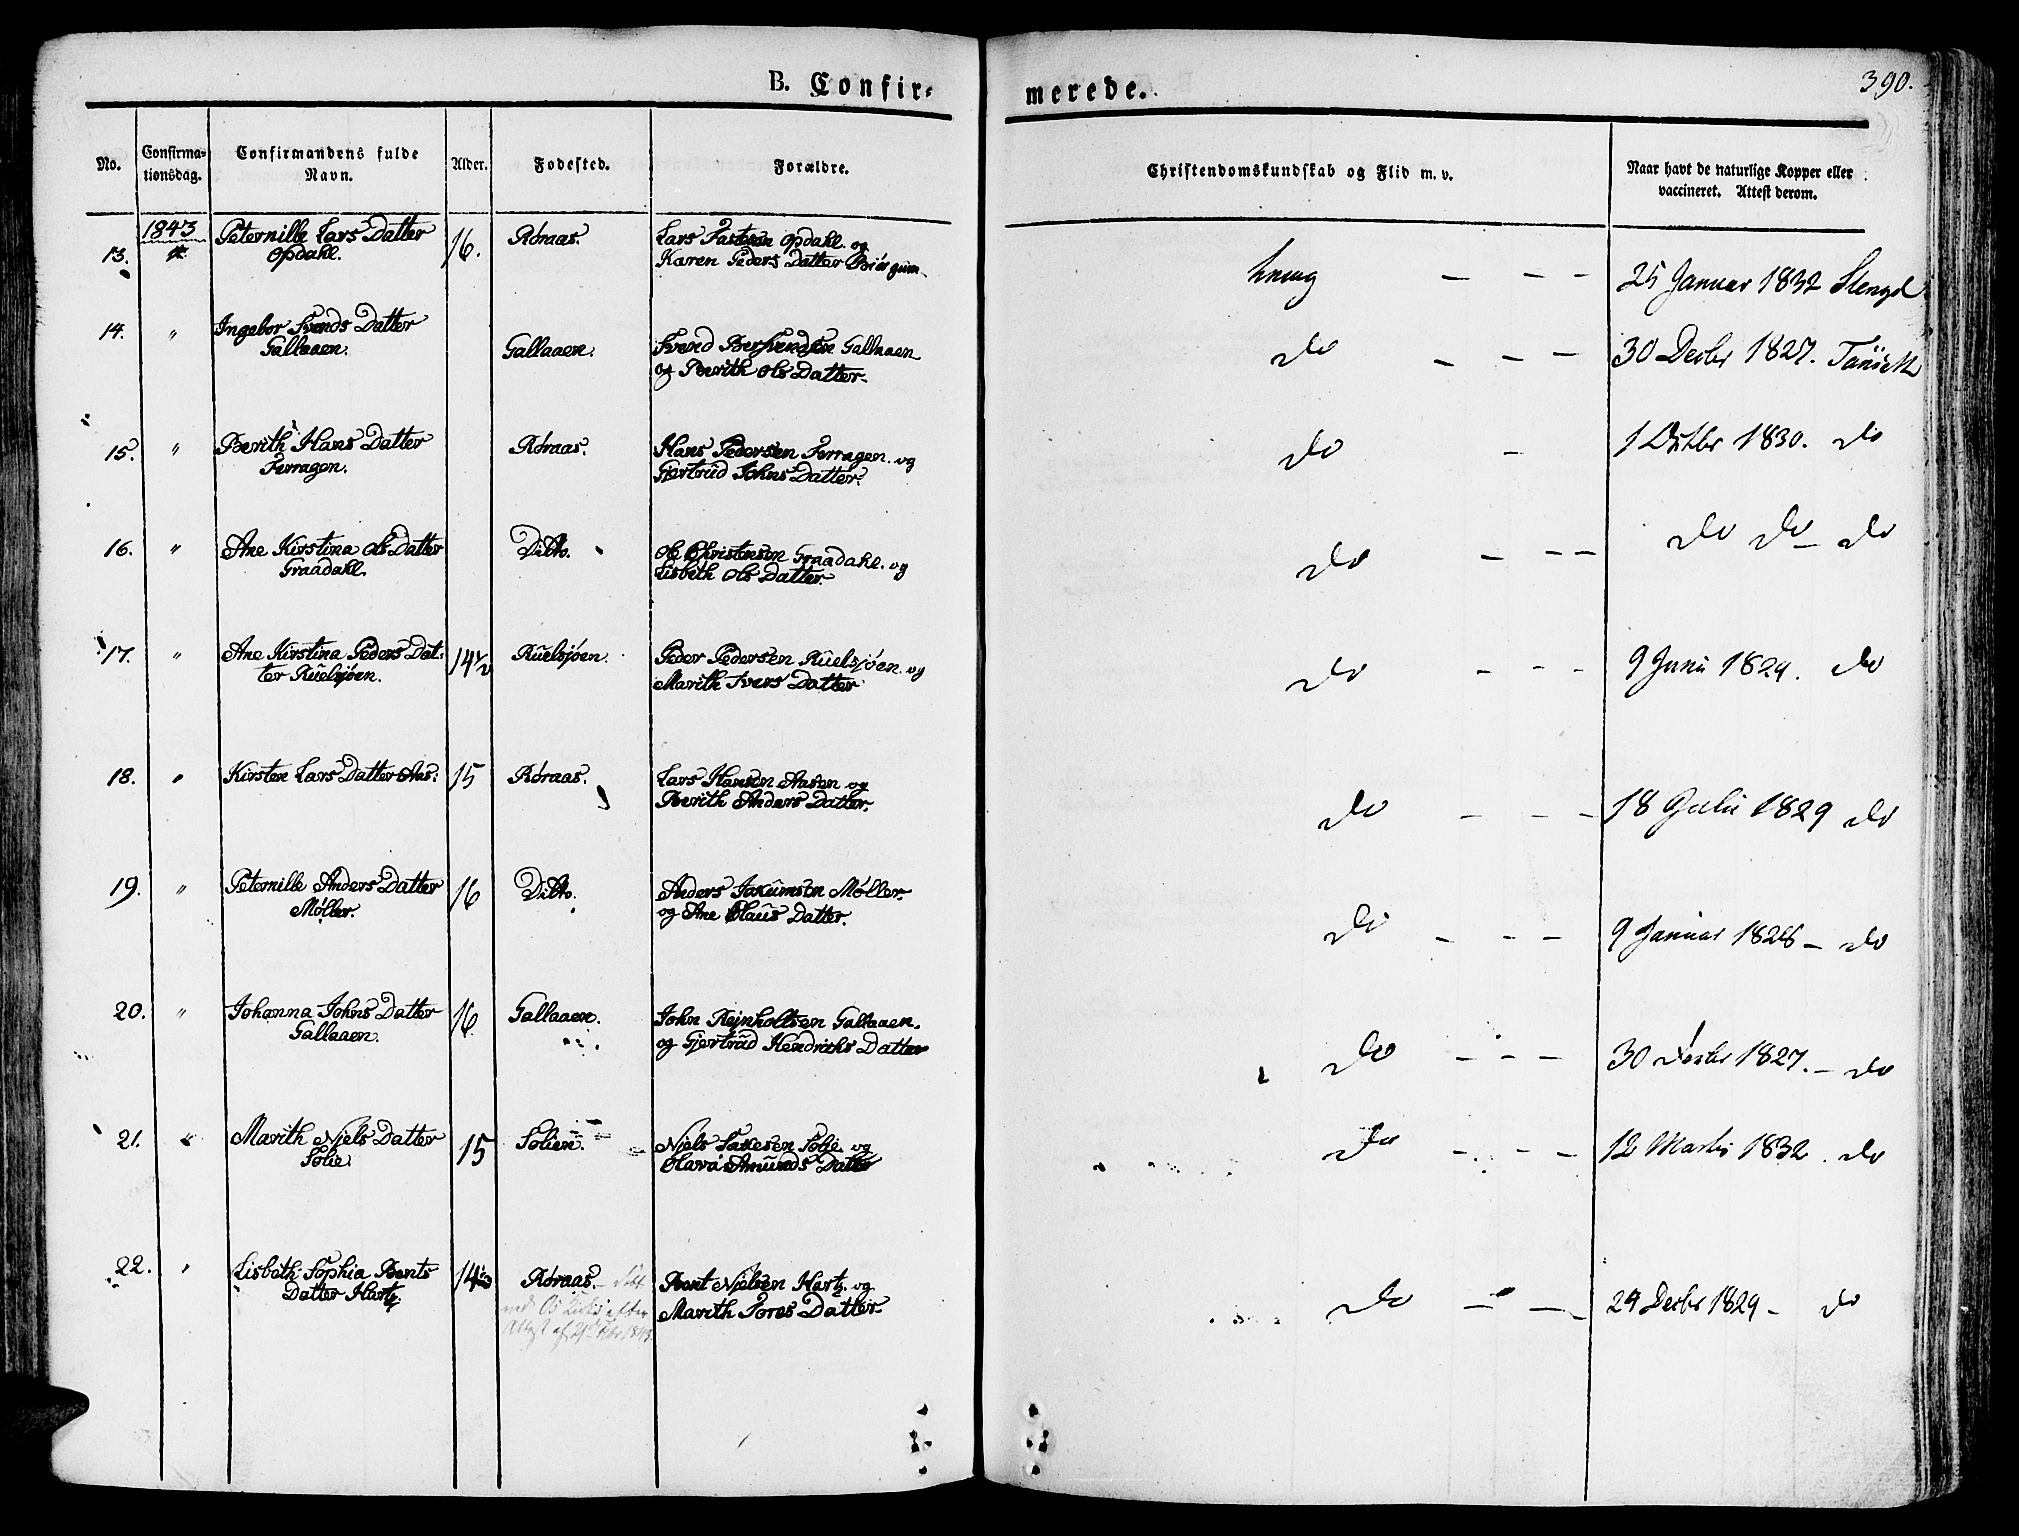 B. Confir-
merede.
390.
No.
Confirma-
tionsdag.
Confirmandens fulde
Navn.
Alder.
Fodested.
Forældre.
Christendomskundskab og Flid m. v.
Naar havt de naturlige Kopper eller
vaccineret. Attest derom.
1843
13.
Peternille Lars Datter
Opdahl.
16.
Røraas.
Lars Opdahl. og
Karen Peders Datter
25 Januar 1832
14. "
Ingebor Svends Datter
Gallaaen.
Gallaaen.
Svend Gallaaen
og Berith Ols Datter.
do
30 Decbr 1827.
15. "
Berith Hans Datter
Ferragen.
Røraas.
Hans Pedersen Ferragen. og
Gjertrüd Johns Datter.
do
1 1830. do
16. "
Ane Kirstina Ols Datter
Graadahl.
Ditto.
Ole Christensen Graadahl. og
Lisbeth Ols Datter.
do
do do do
17. "
Ane Kirstina Peders Dat-
ter Rüelsjøen.
14½
Rüelsjøen.
Peder Pedersen Rüelsjøen. og
Marith Ivers Datter
do
9 Juni 1829. do
18. "
Kirsten Lars Datter Aas:
15
Røraas.
Lars Hansen Aasen og
Berith Anders Datter.
do
18 Julii 1829 do
19. "
Peternille Anders Datter
Møller.
16
Ditto.
Anders Møller.
og Ane Olaus Datter.
do
9 Januar 1828 - do
20. "
Johanna Johns Datter
Gallaaen.
16
Gallaaen.
John Rejnholtsen Gallaaen.
og Gjertrüd Hendrichs Datter
do
30 Decbr 1827. - do
21. "
Marith Niels Datter
Solie.
15
Solien.
Niels Solie. og
Olava Amunds Datter
do
12 Martii 1832. do
22. "
Lisbeth Sophia Bents
Datter Hartz.
14½
Røraas.
Bent Nielsen Hartz. og
Marith Tores Datter.
do
29 Decbr 1829 - do